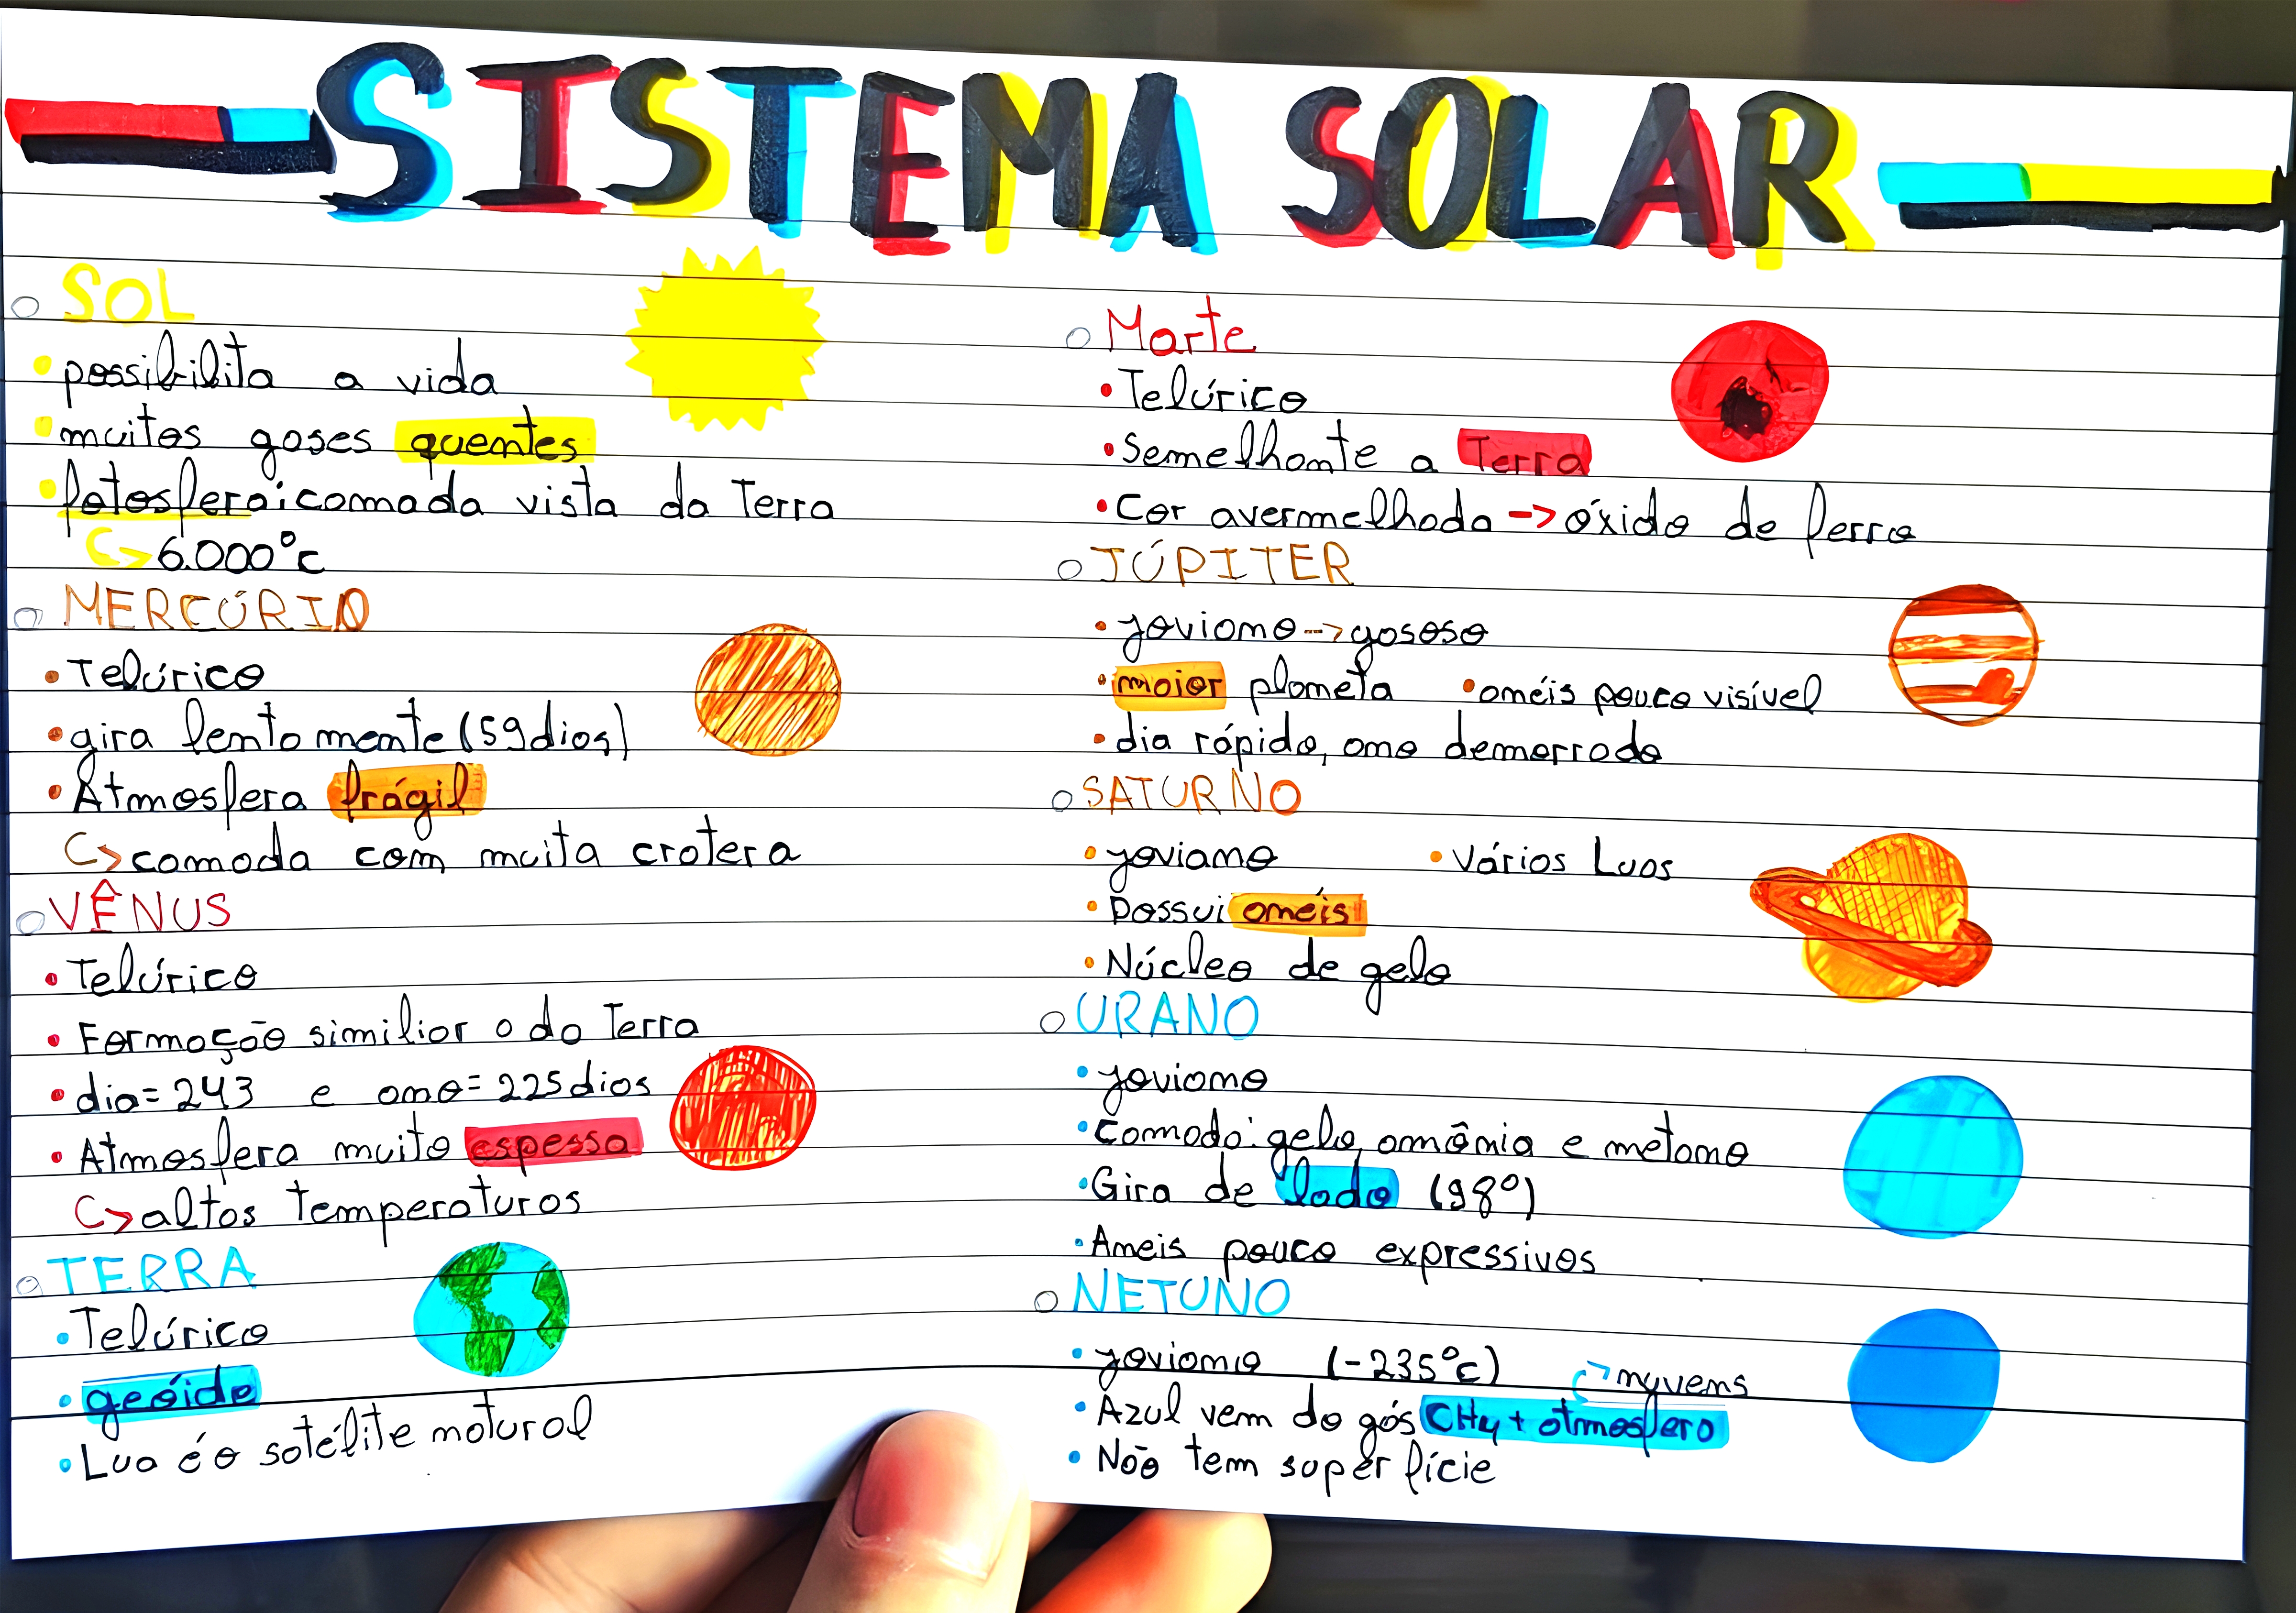 SISTEMA SOLAR
SOL
possibilita a vida
muitos gases quentes
fotosfera: camada vista da Terra
6.000°C
MERCÚRIO
Telúrico
gira lentamente (59 dias)
Atmosfera frágil
camada com muita cratera
VÊNUS
Telúrico
Formação similiar a da Terra
dia = 243 e ano = 225 dias
Atmosfera muito espessa
altas temperaturas
TERRA
Telúrico
geóide
Lua é o satélite natural
Marte
Telúrico
Semelhante a Terra
Cor avermelhada -> óxido de ferro
JÚPITER
joviano --> gasoso
maior planeta • anéis pouco visível
dia rápido, ano demorrado
SATURNO
joviano • Vários Luas
Possui anéis
Núcleo de gelo
URANO
joviano
Camada: gelo, amônia e metano
Gira de lado (98°)
Aneis pouco expressivos
NETUNO
joviano (-235°C) nuvens
Azul vem do gás CH4 + atmosfera
Não tem superfície